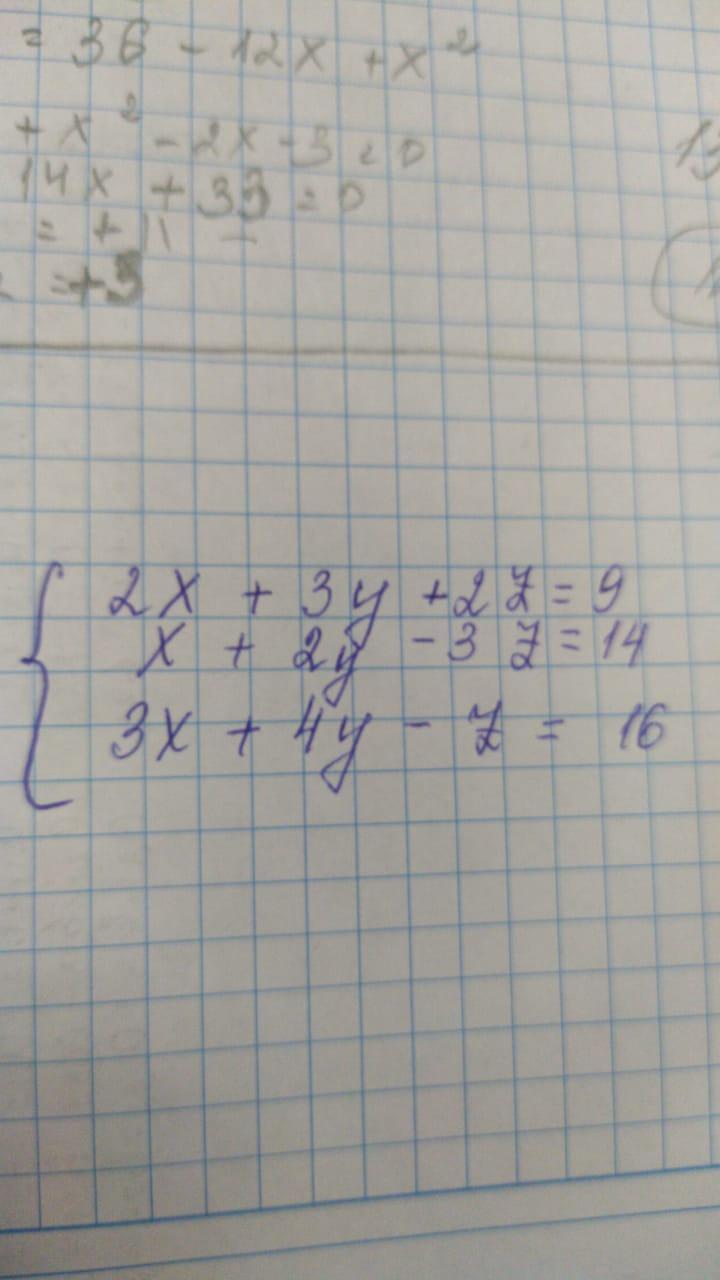 = 36 - 12x + x²
+ x² - 2x - 3 = 0
14x + 33 = 0
= + 11 -
= +3
2x + 3y + 2z = 9
x + 2y - 3z = 14
3x + 4y - z = 16